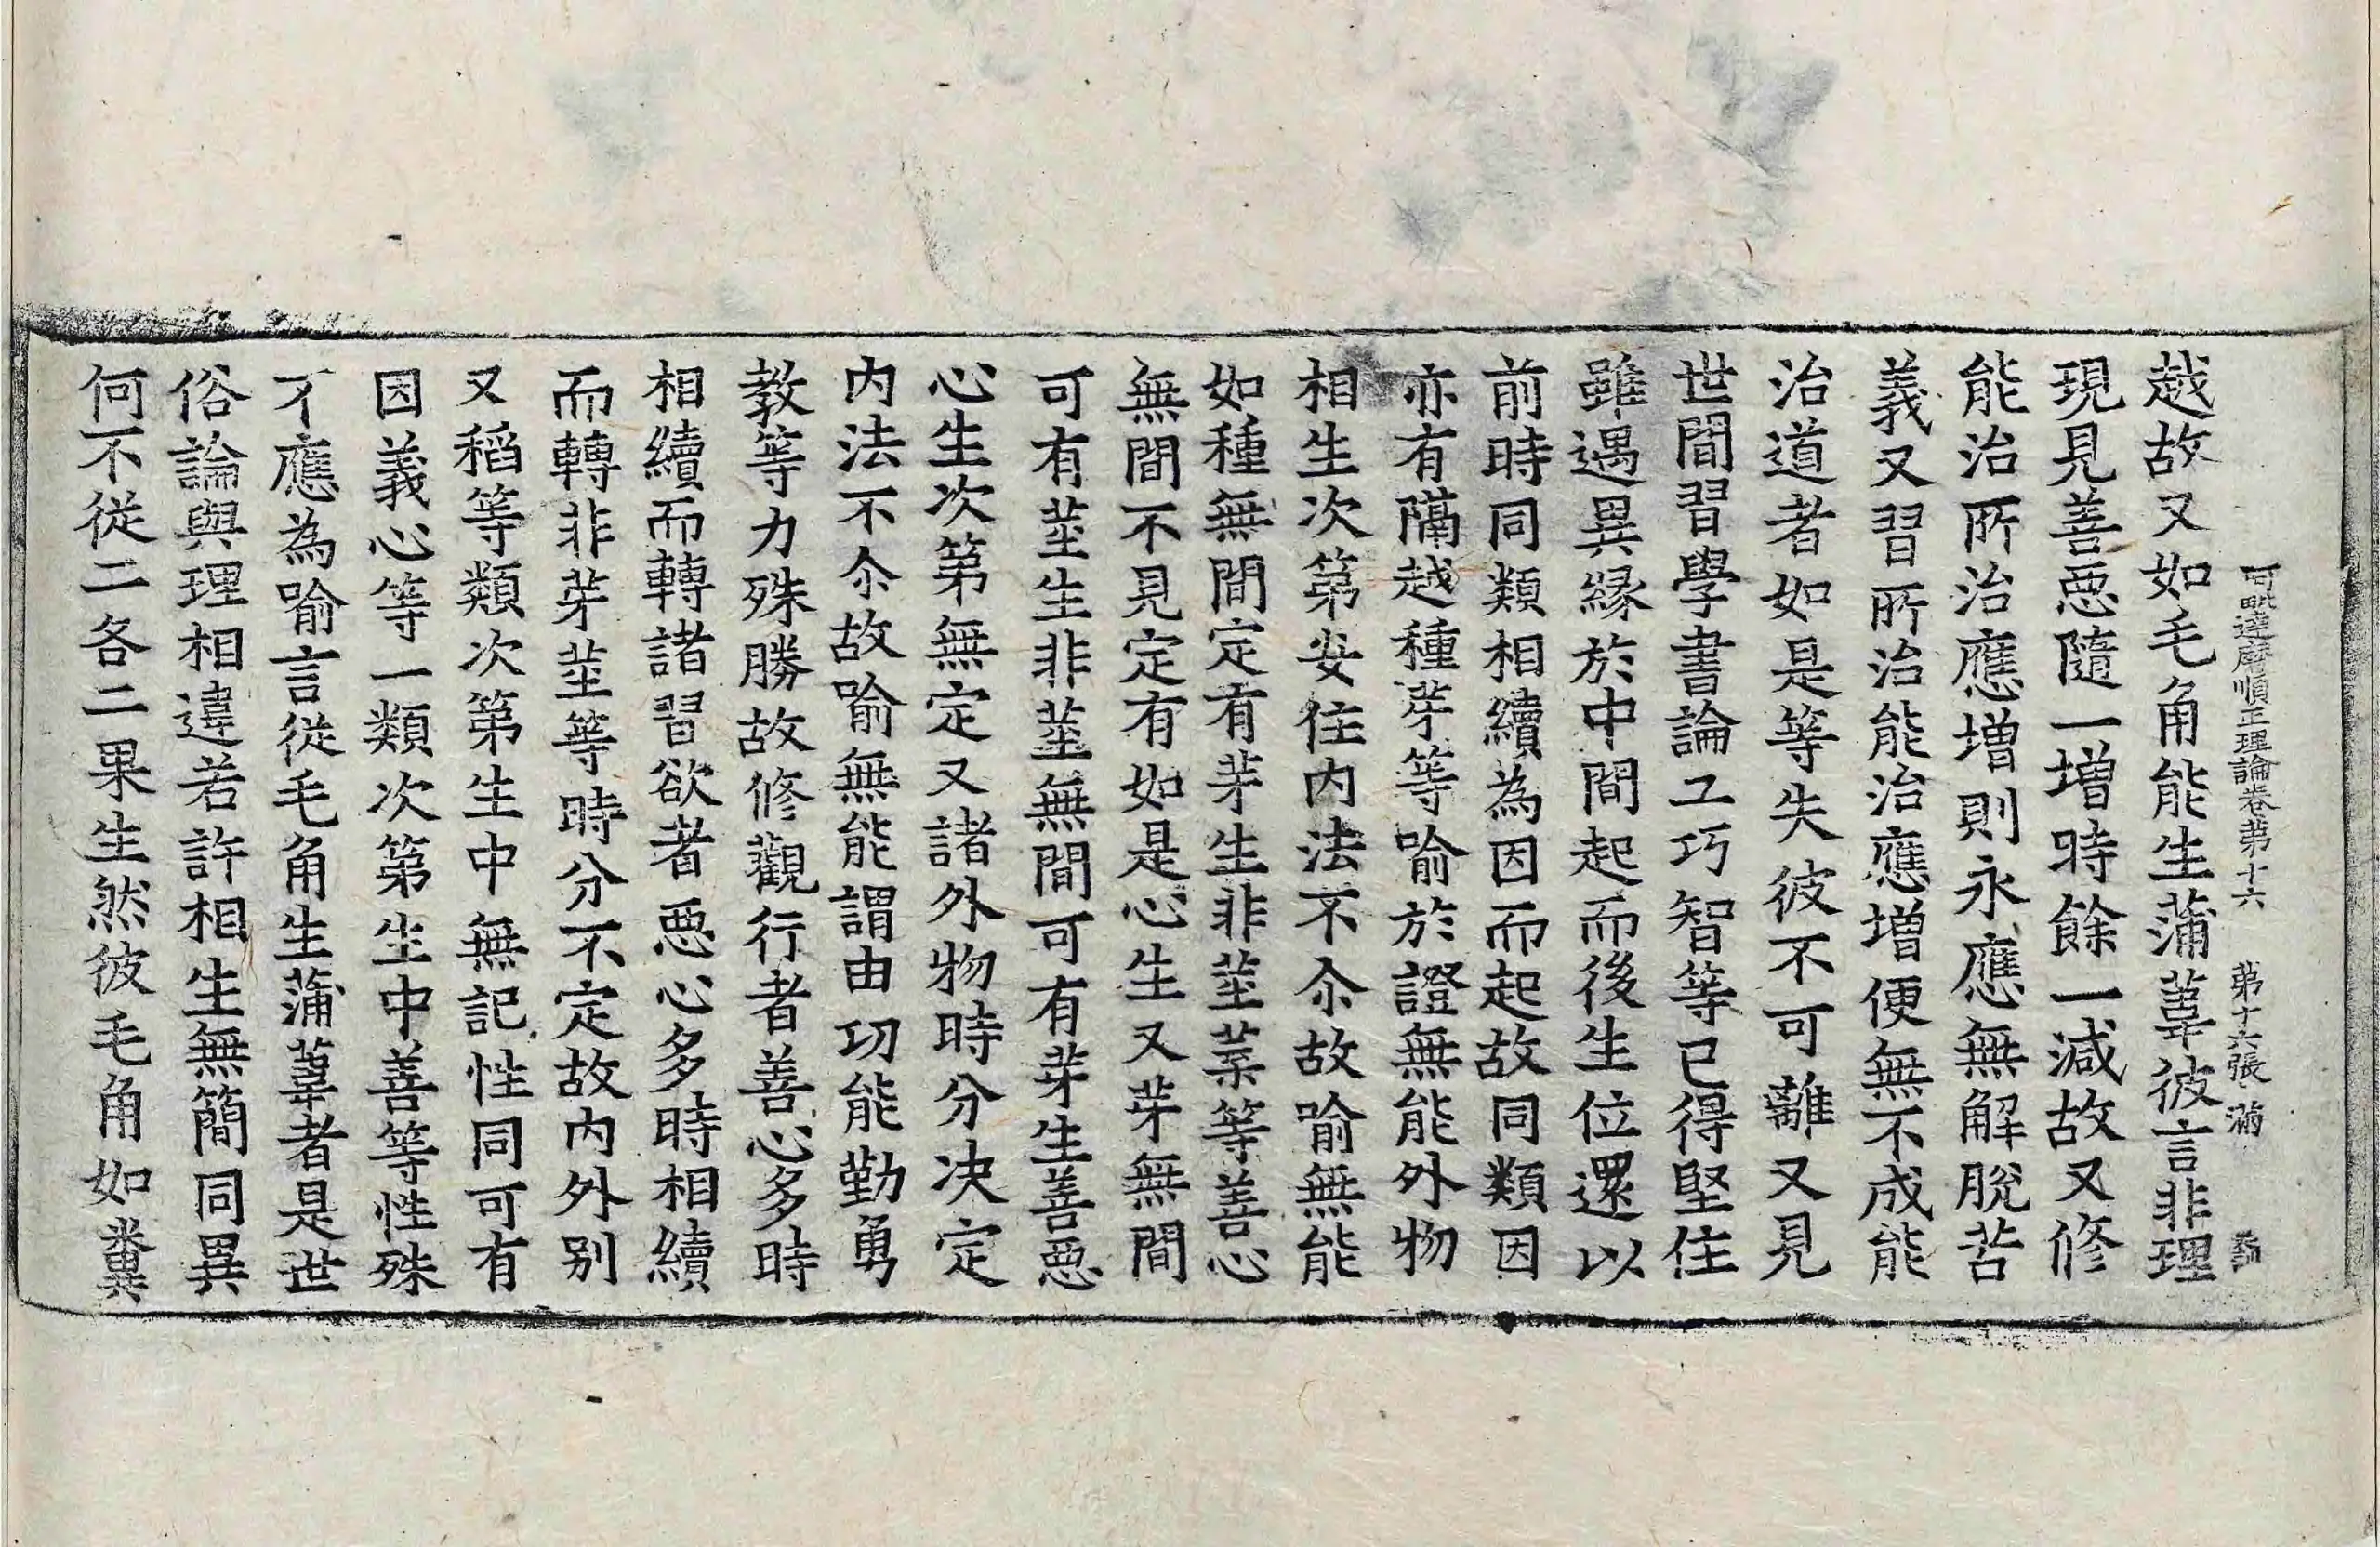 阿毗達磨順正理論卷第十六 第十六張 滿
越故又如毛角能生蒲葦彼言非理
現見善惡隨一增時餘一減故又修
能治所治應增則永應無解脫苦
義又習所治能治應增便無不成能
治道者如是等失彼不可離又見
世間習學書論工巧智等已得堅住
雖遇異緣於中間起而後生位還以
前時同類相續為因而起故同類因
亦有隔越種芽等喻於證無能外物
相生次第安住內法不尒故喻無能
如種無間定有芽生非莖葉等善心
無間不見定有如是心生又芽無間
可有莖生非莖無間可有芽生善惡
心生次第無定又諸外物時分決定
內法不尒故喻無能謂由功能勤勇
教等力殊勝故修觀行者善心多時
相續而轉諸習欲者惡心多時相續
而轉非芽莖等時分不定故內外別
又稻等類次第生中無記性同可有
因義心等一類次第生中善等性殊
不應為喻言從毛角生蒲葦者是世
俗論與理相違若許相生無簡同異
何不從二各二果生然彼毛角如糞